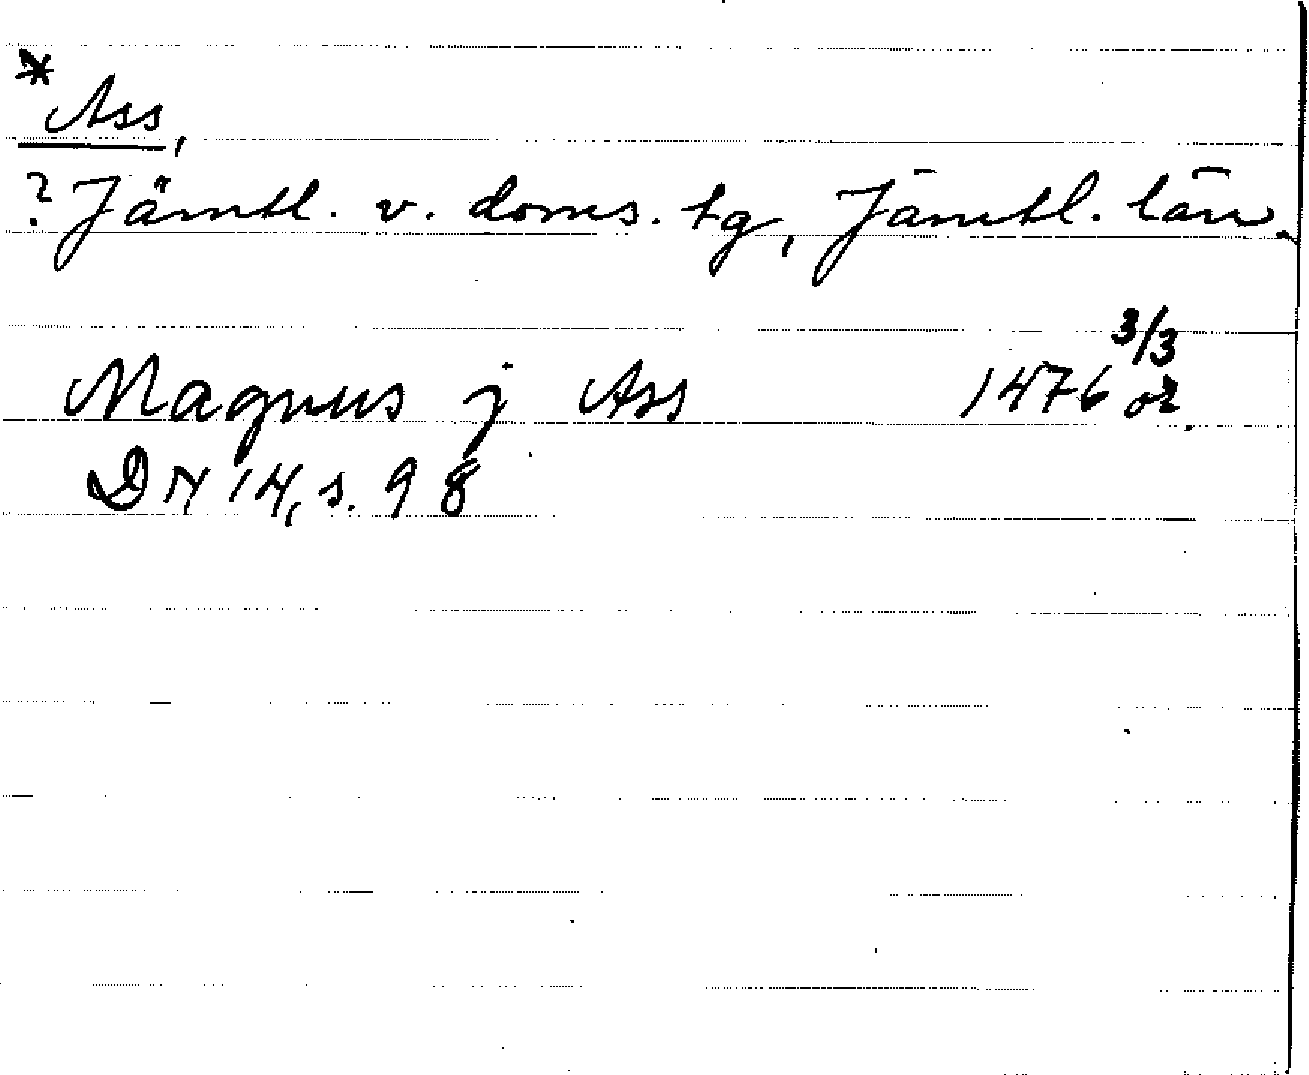 * Ass,
? Jämtl. v. doms. tg, Jämtl. län.
Magnus j Ass 1476 3/3 or.
DN 14, s. 98